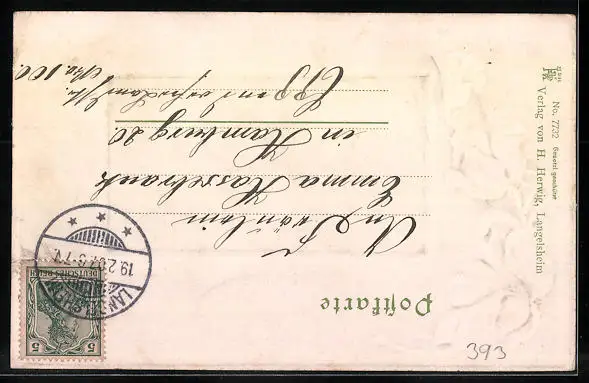 Postkarte
An Fräulein
Emma Hassebrauk
in Hamburg 20.
Eppendorferlandstr.
No. 100.
5
DEUTSCHES REICH
LANGELSHEIM
19.2.07.6-7V
No. 7732 Gesetzl. geschützt
Verlag von H. Herwig, Langelsheim
393